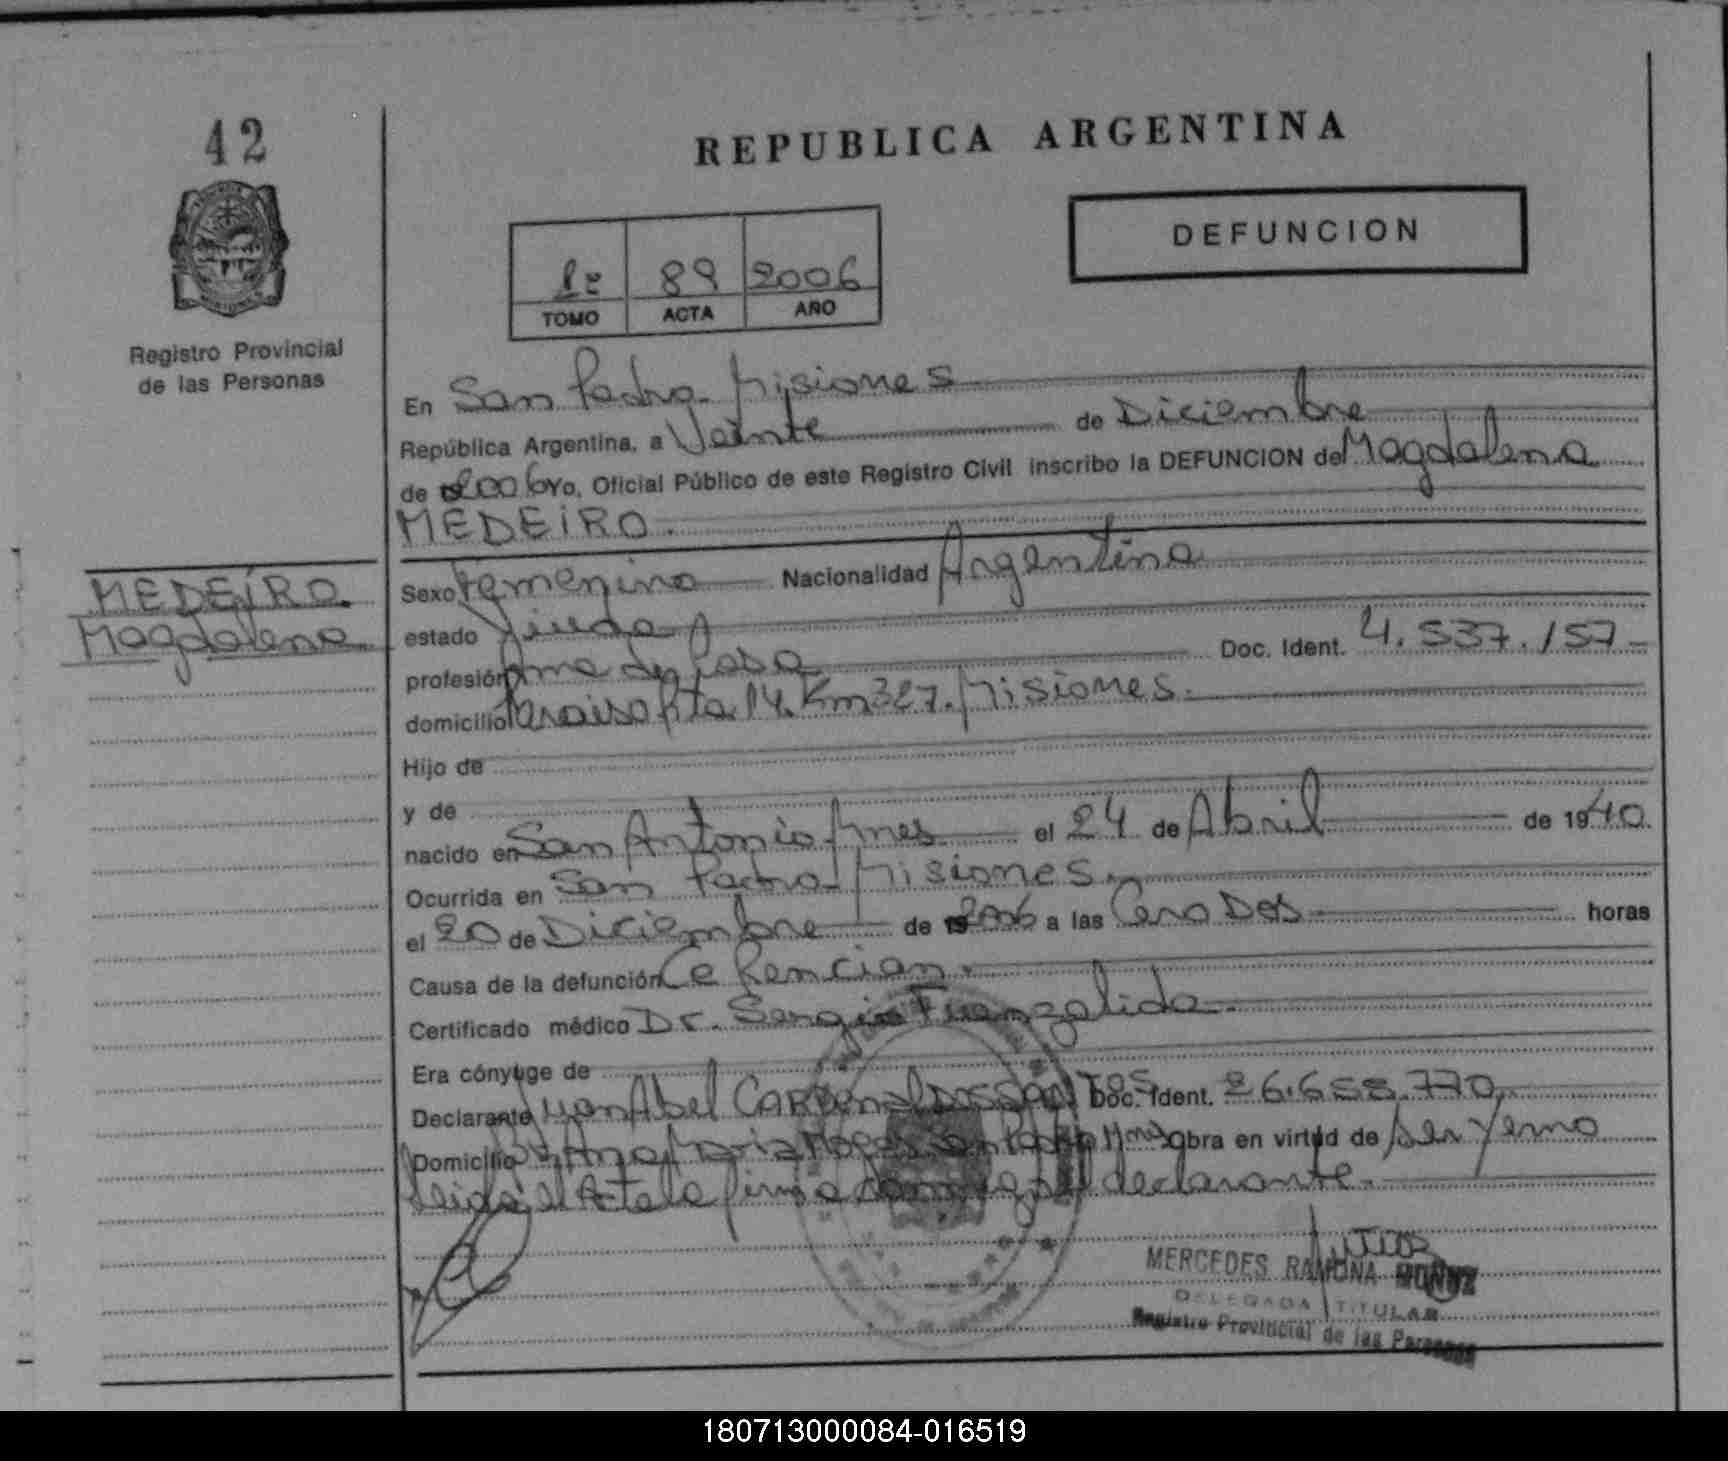 42
REPUBLICA ARGENTINA
DEFUNCION
1º 89 2006
TOMO ACTA AÑO
Registro Provincial
de las Personas
En San Pedro Misiones
República Argentina, a Veinte de Diciembre
de 2006 yo, Oficial Público de este Registro Civil inscribo la DEFUNCION de Magdalena
MEDEiRO.
MEDEiRO.
Magdalena
Sexo Femenino Nacionalidad Argentina
estado Viuda
profesión Ama de Casa Doc. Ident. 4.537.157
domicilio Paraiso Ruta 14. Km 327. Misiones.
Hijo de
y de
nacido en San Antonio Mnes el 24 de Abril de 1940.
Ocurrida en San Pedro Misiones.
el 20 de Diciembre de 2006 a las Cero Dos horas
Causa de la defunción
Certificado médico Dr. Sergio Fuenzalida.
Era cónyuge de
Declarante Juan Abel DOSSANTOS Doc. Ident. 26.658.770
Domicilio San Pedro Mnes obra en virtud de ser Yerno
Leida el Acta la firma conmigo el declarante.
MERCEDES RAMONA MUÑOZ
DELEGADA TITULAR
Registro Provincial de las Personas
180713000084-016519